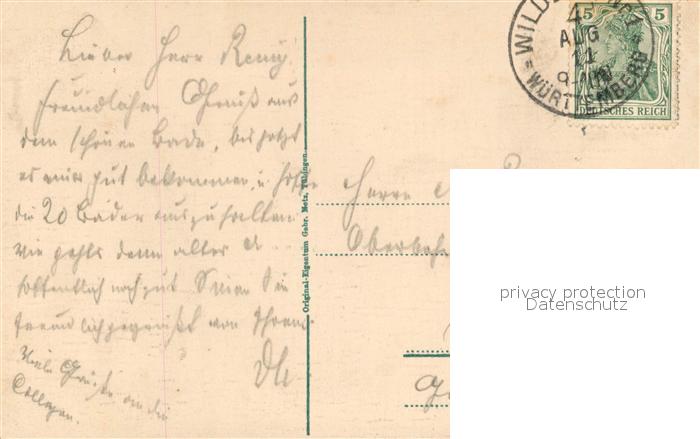 Lieber Herr Remy!
Freundlichen Gruß aus
dem schönen Bade, bis jetzt
es mir gut bekommen, u. hoffe
die 20 Bäder auszuhalten
wie gehts denn alter
hoffentlich noch gut Seien Sie
freundlich gegrüßt von Ihrem
Viele Grüße an die
Collegen.
Original-Eigentum Gebr. Metz, Tübingen.
WILDBAD
4
AUG
11
9-10V
WÜRTTEMBERG
5 5
DEUTSCHES REICH
Herrn
privacy protection
Datenschutz